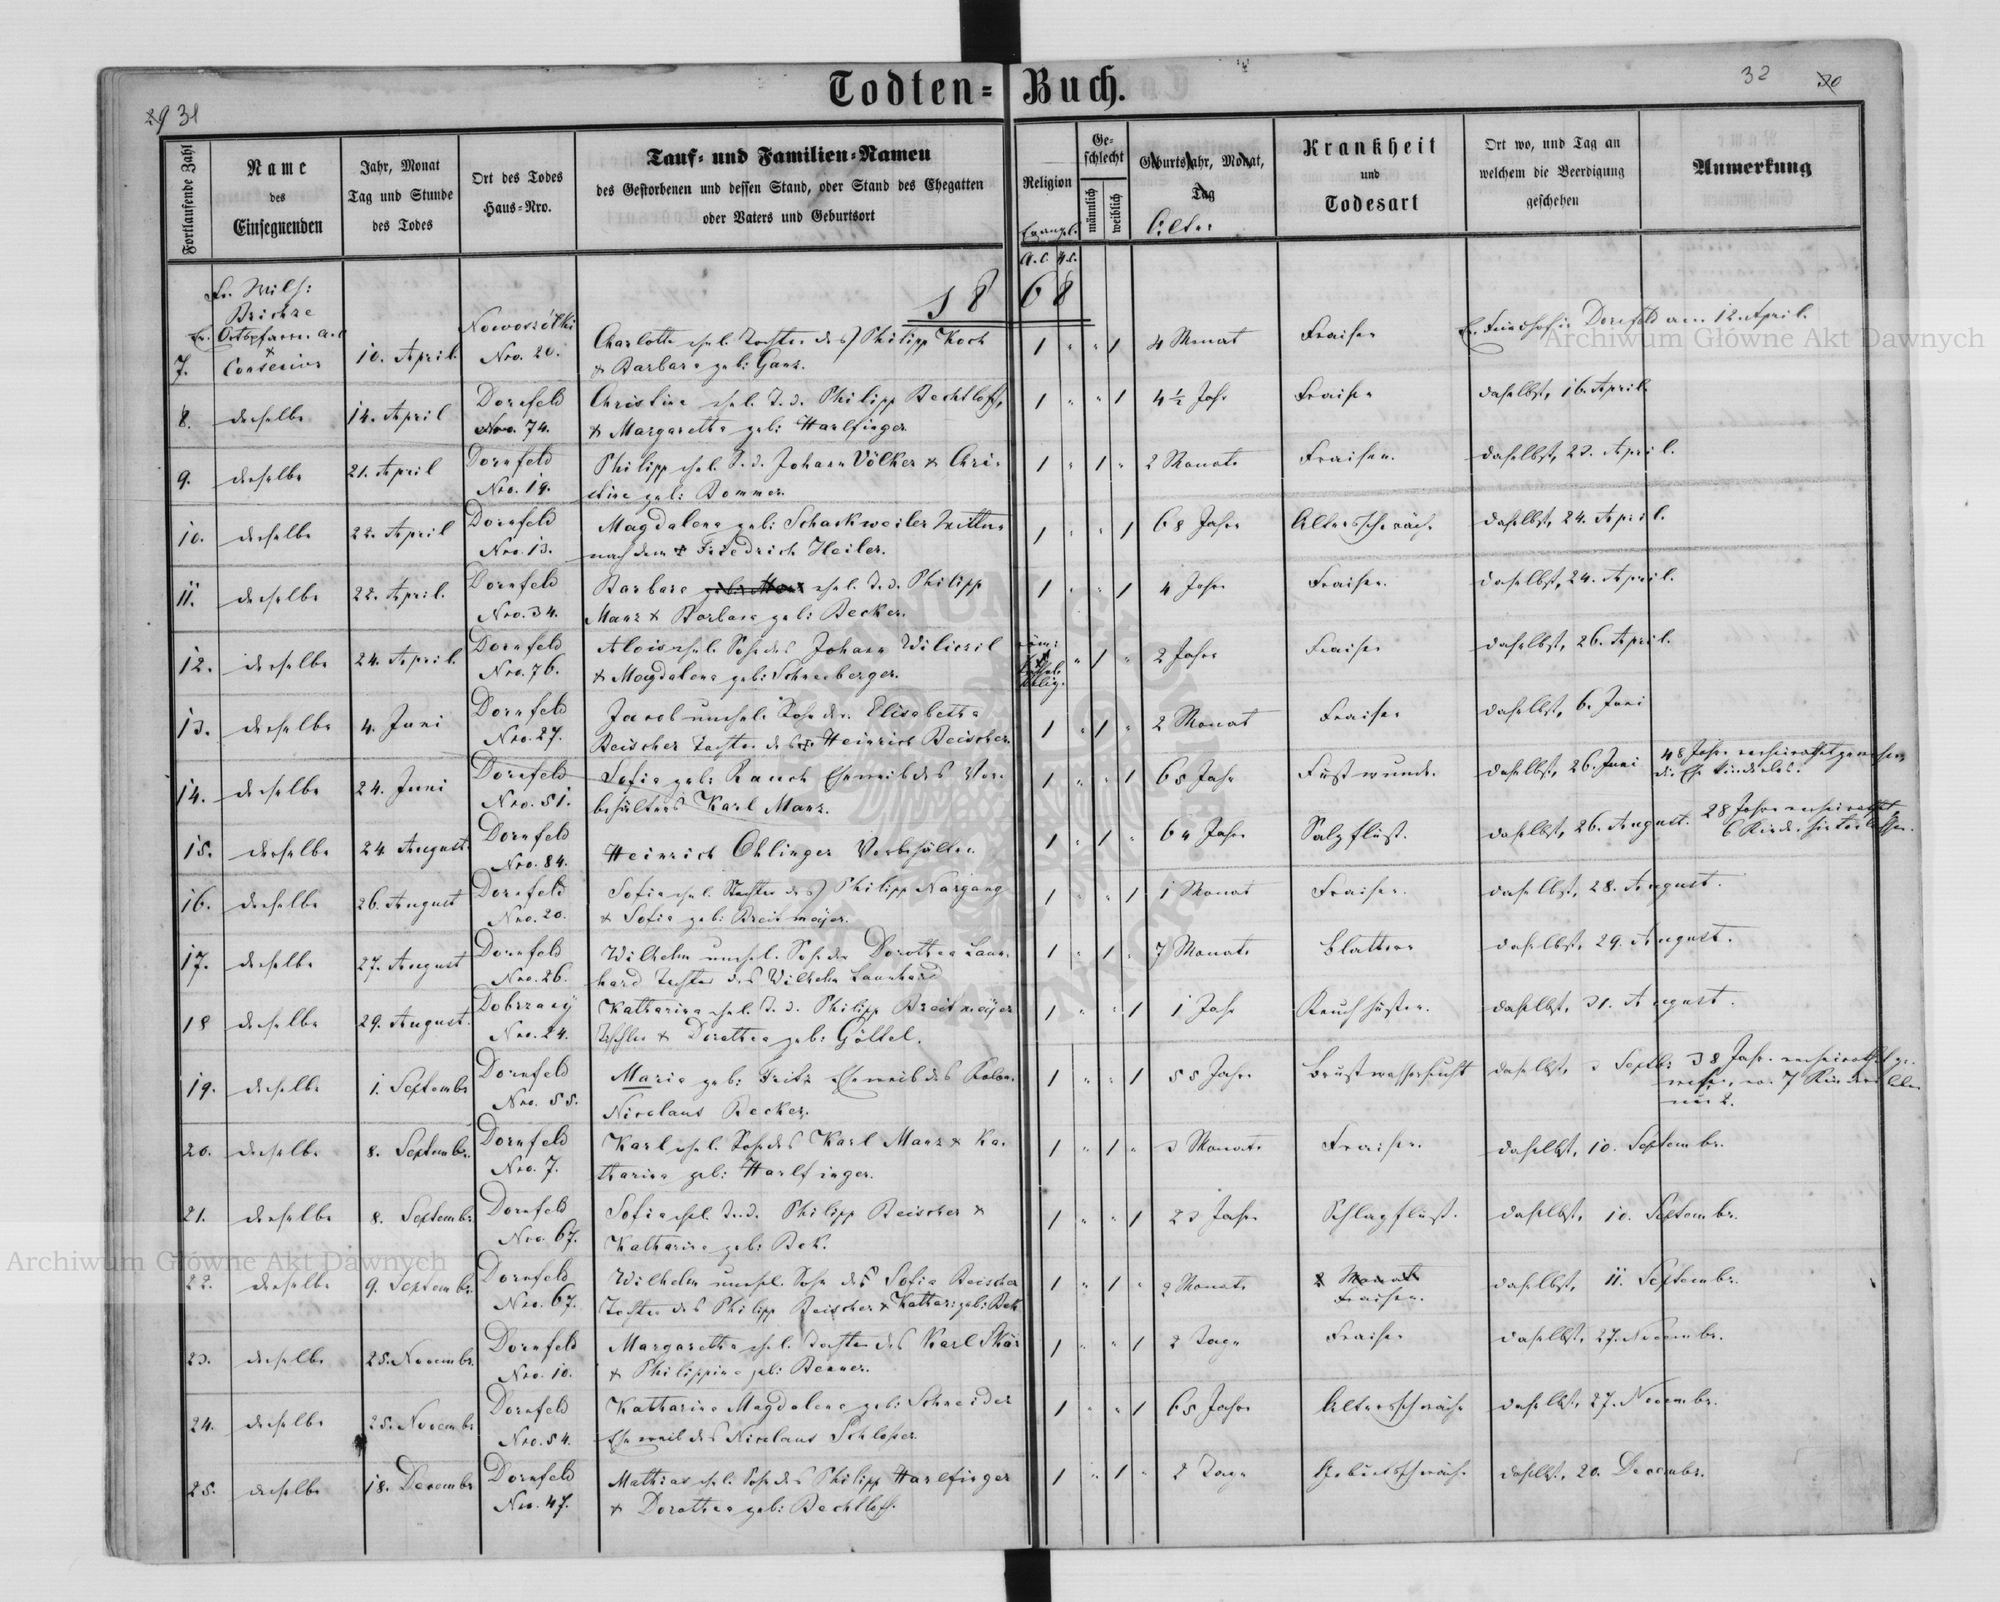 Todten-Buch.
29 31
32 30
Fortlaufende Zahl
Name
des
Einsegnenden
Jahr, Monat
Tag und Stunde
des Todes
Ort des Todes
Haus-Nro.
Tauf- und Familien-Namen
des Gestorbenen und dessen Stand, oder Stand des Ehegatten
oder Vaters und Geburtsort
Religion
Evangel.
A.C. H.C.
Ge-
schlecht
männlich
weiblich
Geburtsjahr, Monat,
Tag
Alter
Krankheit
und
Todesart
Ort wo, und Tag an
welchem die Beerdigung
geschehen
Anmerkung
1868
Ev. Ortspfarrer A.C.
7. 10. April Nowosiółki Nro. 20. Charlotte ehel. Tochter des Philipp Koch
& Barbara geb: Ganz. 1 " " 1 4 Monat Fraisen Friedhof in Dornfeld am 12 April.
8. derselbe 14. April Dornfeld Nro. 74. Christine ehel. T. d. Philipp Bechtloff,
& Margaretha geb: Harlfinger 1 " " 1 4½ Jahr Fraisen daselbst, 16. April.
9. derselbe 21. April Dornfeld Nro. 19. Philipp ehel. S. d. Johann Völker & Chri-
stine geb: Bommer. 1 " 1 " 2 Monate Fraisen. daselbst, 23. April.
10. derselbe 22. April Dornfeld Nro. 13. Magdalena geb: Schackweiler Wittwe
nach dem † Friedrich Heiler. 1 " " 1 68 Jahre Altersschwäche daselbst, 24. April.
11. derselbe 22. April. Dornfeld Nro. 34. Barbara ehel. T. d. Philipp
Manz & Barbara geb: Becker. 1 " " 1 4 Jahre Fraisen. daselbst, 24. April.
12. derselbe 24. April. Dornfeld Nro. 76. Alois ehel. Sohn des Johann
& Magdalena geb: Schneeberger. röm: kathol. Relig. " 1 " 2 Jahre Fraisen daselbst, 26. April.
13. derselbe 4. Juni Dornfeld Nro. 27. Jacob unehel. Sohn der Elisabetha
Beischer Tochter des † Heinrich Beischer. 1 " 1 " 2 Monat Fraisen daselbst, 6. Juni
14. derselbe 24. Juni Dornfeld Nro. 51. Sofia geb: Rauch Eheweib des Vor-
behälters Karl Manz. 1 " " 1 65 Jahr Fußwunde. daselbst, 26. Juni 48 Jahre verheirathet gewesen
die Ehe kinderlos.
15. derselbe 24. August. Dornfeld Nro. 84. Heinrich Ohlinger Vorbehälter. 1 " 1 " 64 Jahre Salzfluß. daselbst, 26. August. 28 Jahre verheirathet
6 Kinder hinterlassen.
16. derselbe 26. August Dornfeld Nro. 20. Sofia ehel. Tochter des Philipp Nargang
& Sofia geb: Breitmeÿer. 1 " " 1 1 Monat Fraisen. daselbst, 28. August.
17. derselbe 27. August Dornfeld Nro. 26. Wilhelm unehel. Sohn der Dorothea Laun-
hard Tochter des Wilhelm Launhard 1 " 1 " 7 Monate Blattern daselbst, 29. August.
18 derselbe 29. August. Dobrzany Nro. 24. Katharina ehel. T. d. Philipp Breitmeÿer
Tischler & Dorothea geb: Göttel. 1 " " 1 1 Jahr Keuchhusten. daselbst, 31. August.
19. derselbe 1. Septembr Dornfeld Nro. 55. Maria geb: Fritz Eheweib des Kolon.
Nicolaus Becker. 1 " " 1 55 Jahre Brustwassersucht daselbst, 3 Septbr. 38 Jahre verheirathet ge-
wesen, von 7 Kindern leben
nur 2.
20. derselbe 8. Septembr. Dornfeld Nro. 7. Karl ehel. Sohn des Karl Manz & Ka-
tharina geb: Harlfinger. 1 " 1 " 3 Monate Fraisen. daselbst, 10. Septembr.
21. derselbe 8. Septembr Dornfeld Nro. 67. Sofia ehel. T. d. Philipp Beischer &
Katharina geb: Bek. 1 " " 1 23 Jahre Schlagfluß. daselbst, 10. Septembr.
22. derselbe 9. Septembr. Dornfeld Nro. 67. Wilhelm unehel. Sohn der Sofia Beischer
Tochter des Philipp Beischer & Kathar: geb: Bek 1 " 1 " 2 Monate 2 Monat
Fraisen. daselbst, 11. Septembr.
23. derselbe 25. Novembr. Dornfeld Nro. 10. Margaretha ehel. Tochter des Karl
& Philippina geb: Benner. 1 " " 1 2 Tage Fraisen daselbst, 27. Novembr.
24. derselbe 25. Novembr Dornfeld Nro. 54. Katharina Magdalena geb: Schneider
Eheweib des Nicolaus Schloßer. 1 " " 1 65 Jahre Altersschwäche daselbst, 27. Novembr.
25. derselbe 18. Decembr Dornfeld Nro. 47. Mathias ehel. Sohn des Philipp Harlfinger
& Dorothea geb: Bechtloff. 1 " 1 " 2 Tage Geburtsschwäche. daselbst, 20. Decembr.
Archiwum Główne Akt Dawnych
Archiwum Główne Akt Dawnych